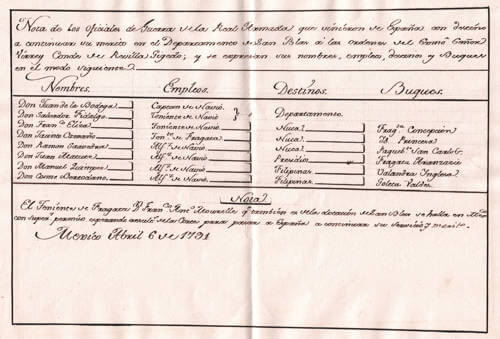 Nota de los Oficiales de Guerra de la Real Armada que vinieron de España con destino
a continuar su merito en el Departamento de San Blas á las ordenes del Exmô Señor
Virrey Conde de Revilla Gigedo; y se expresan sus nombres, empleos, destinos y Buques
en el modo siguiente.
Nombres. Empleos. Destinos. Buques.
Don Juan de la Bodega Capitan de Navio Departamento.
Don Salvador Fidalgo Teniente de Navio Nuca Frag.ta Concepción
Don Fran.co Eliza Teniente de Navio Nuca Princesa
Don Jacinto Caamaño Ten.te de Fragata Nuca Paquebot San Carlos
Don Ramon Alf.z de Navio Presidio Fragata Aranzazu
Don Juan Alf.z de Navio Filipinas Valandra Inglesa
Don Manuel Quimper Alf.z de Navio Filipinas Goleta Valdés
Don Cosme Alf.z de Navio
Nota
El Teniente de Fragata D. Fran.co Ant.o Mourelle q.e tambien es de la dotacion de San Blas se halla en
con super.r permiso esperando para pasar a España a continuar su servicio y merito.
Mexico Abril 6 de 1791